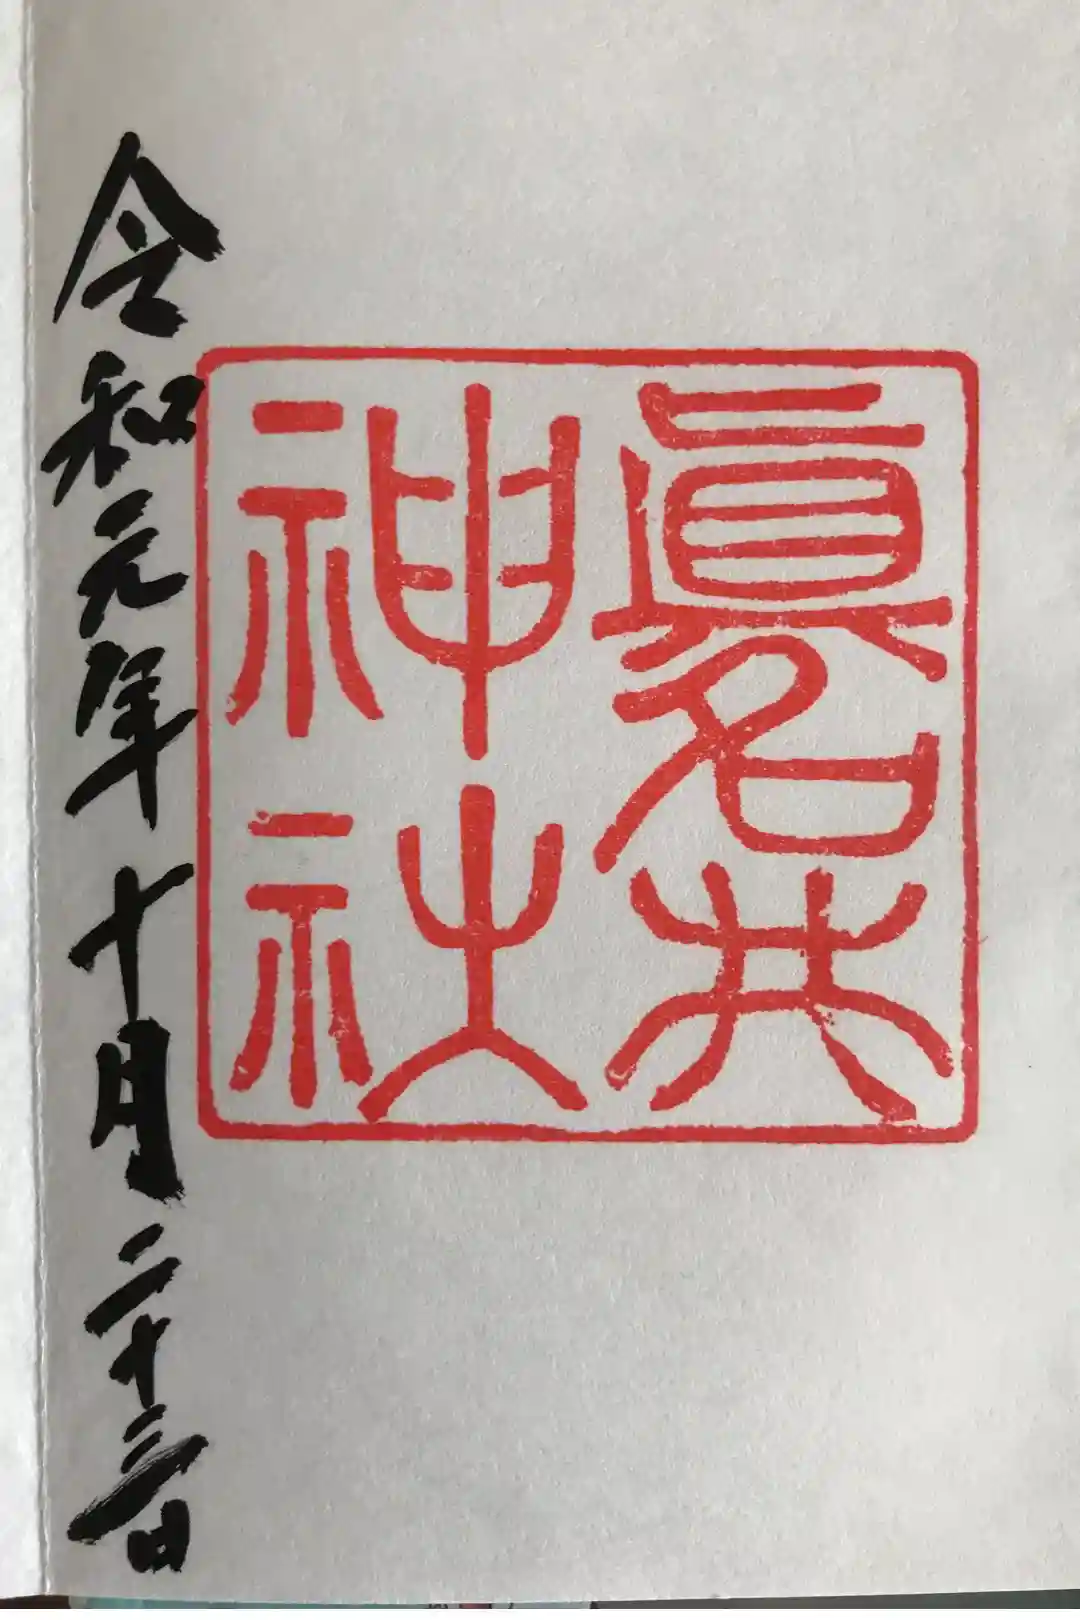 眞名井
神社
令和元年十月二十三日